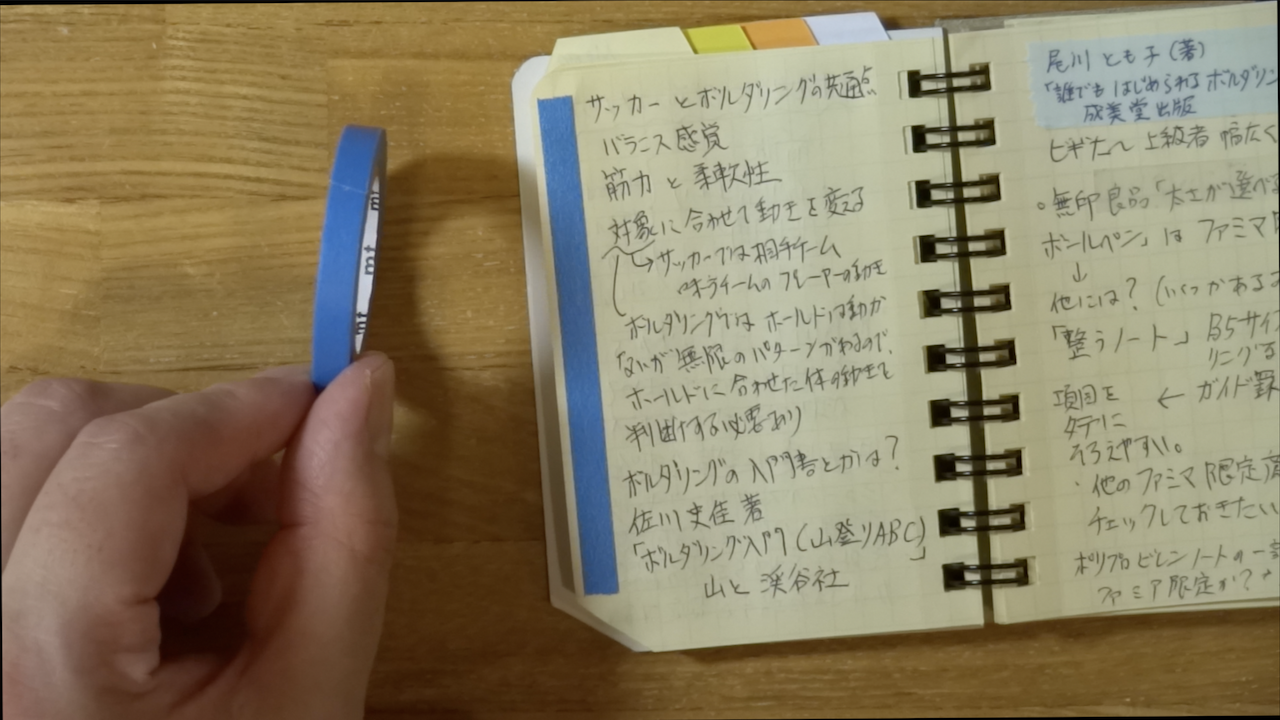 mt
mt
mt
サッカーとボルダリングの共通点
バランス感覚
筋力と柔軟性
対象に合わせて動きを変える
↳サッカーでは相手チーム
味方チームのプレーヤーの動き
ボルダリングではホールドは動か
ないが無限のパターンがあるので、
ホールドに合わせた体の動きを
判断する必要あり
ボルダリングの入門書とかは?
佐川史佳 著
「ボルダリング入門(山登りABC)」
山と渓谷社
尾川とも子(著)
「誰でもはじめられるボルダリン
成美堂出版
ビギナー〜上級者 幅広く
。無印良品「太さが選べる
ボールペン」は ファミマ
↓
他には? (いくつかある
「整うノート」 B5サイズ
リングる
項目を ← ガイド罫
タテに
そろえやすい。
・他のファミマ限定商
チェックしておきたい
ポリプロピレンノートの一部
ファミマ限定か?